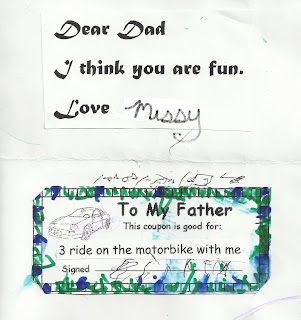 Dear Dad
I think you are fun.
Love Missy
To My Father
This coupon is good for:
3 ride on the motorbike with me
Signed